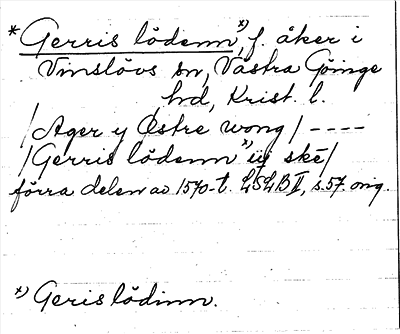 * Gerris lödenn x), f. åker i
Vinslövs sn, Västra Göinge
hd, Krist. l.
/Ager y Østre wong/ ----
/Gerris lödenn x) iij skē/
förra delen av 1570-t. LSLB II, s. 57. orig.
x) Geris lödinn.